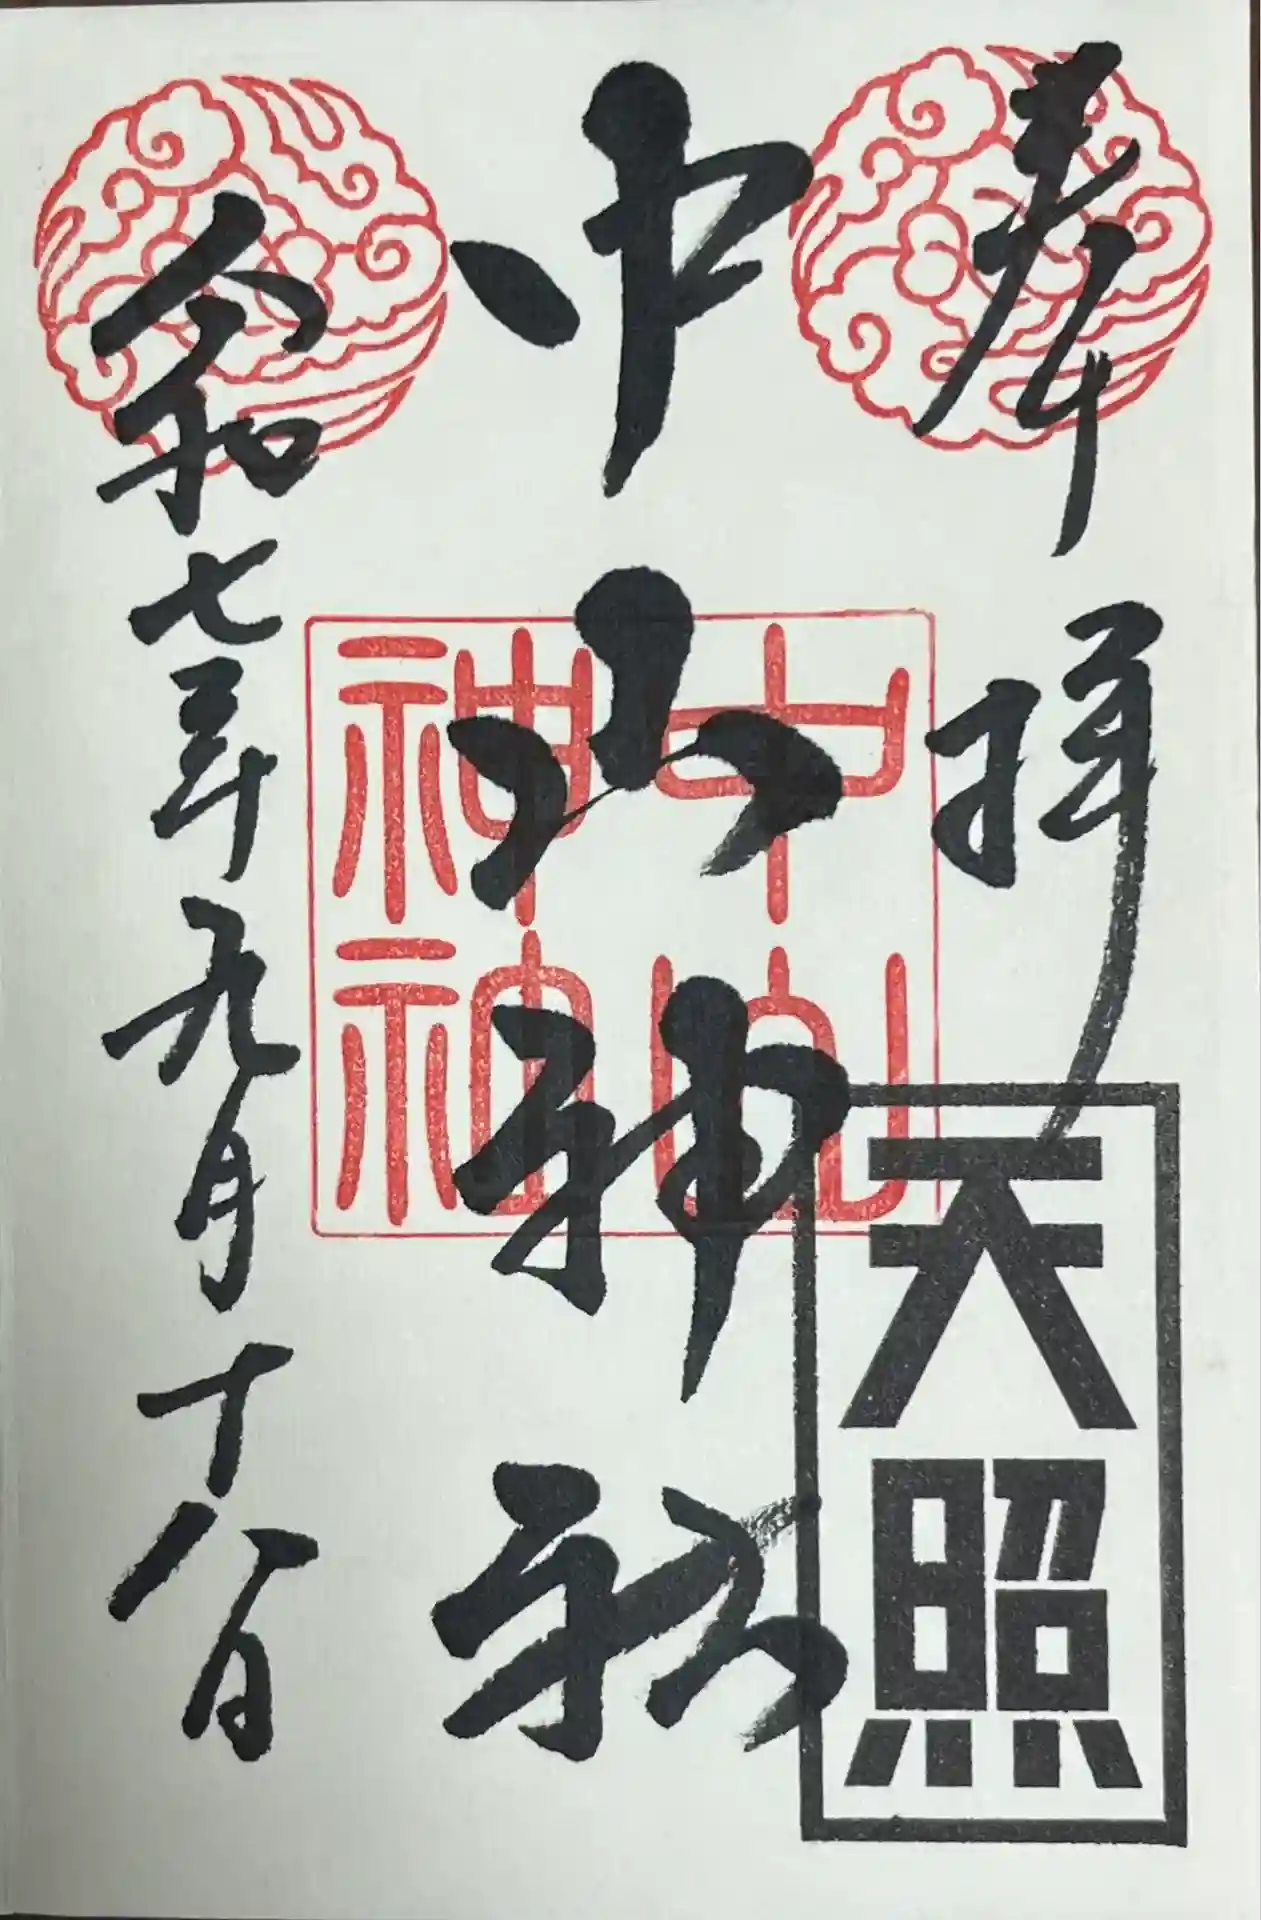 奉拝
天照
中山神社
令和七年九月十八日
中山
神社